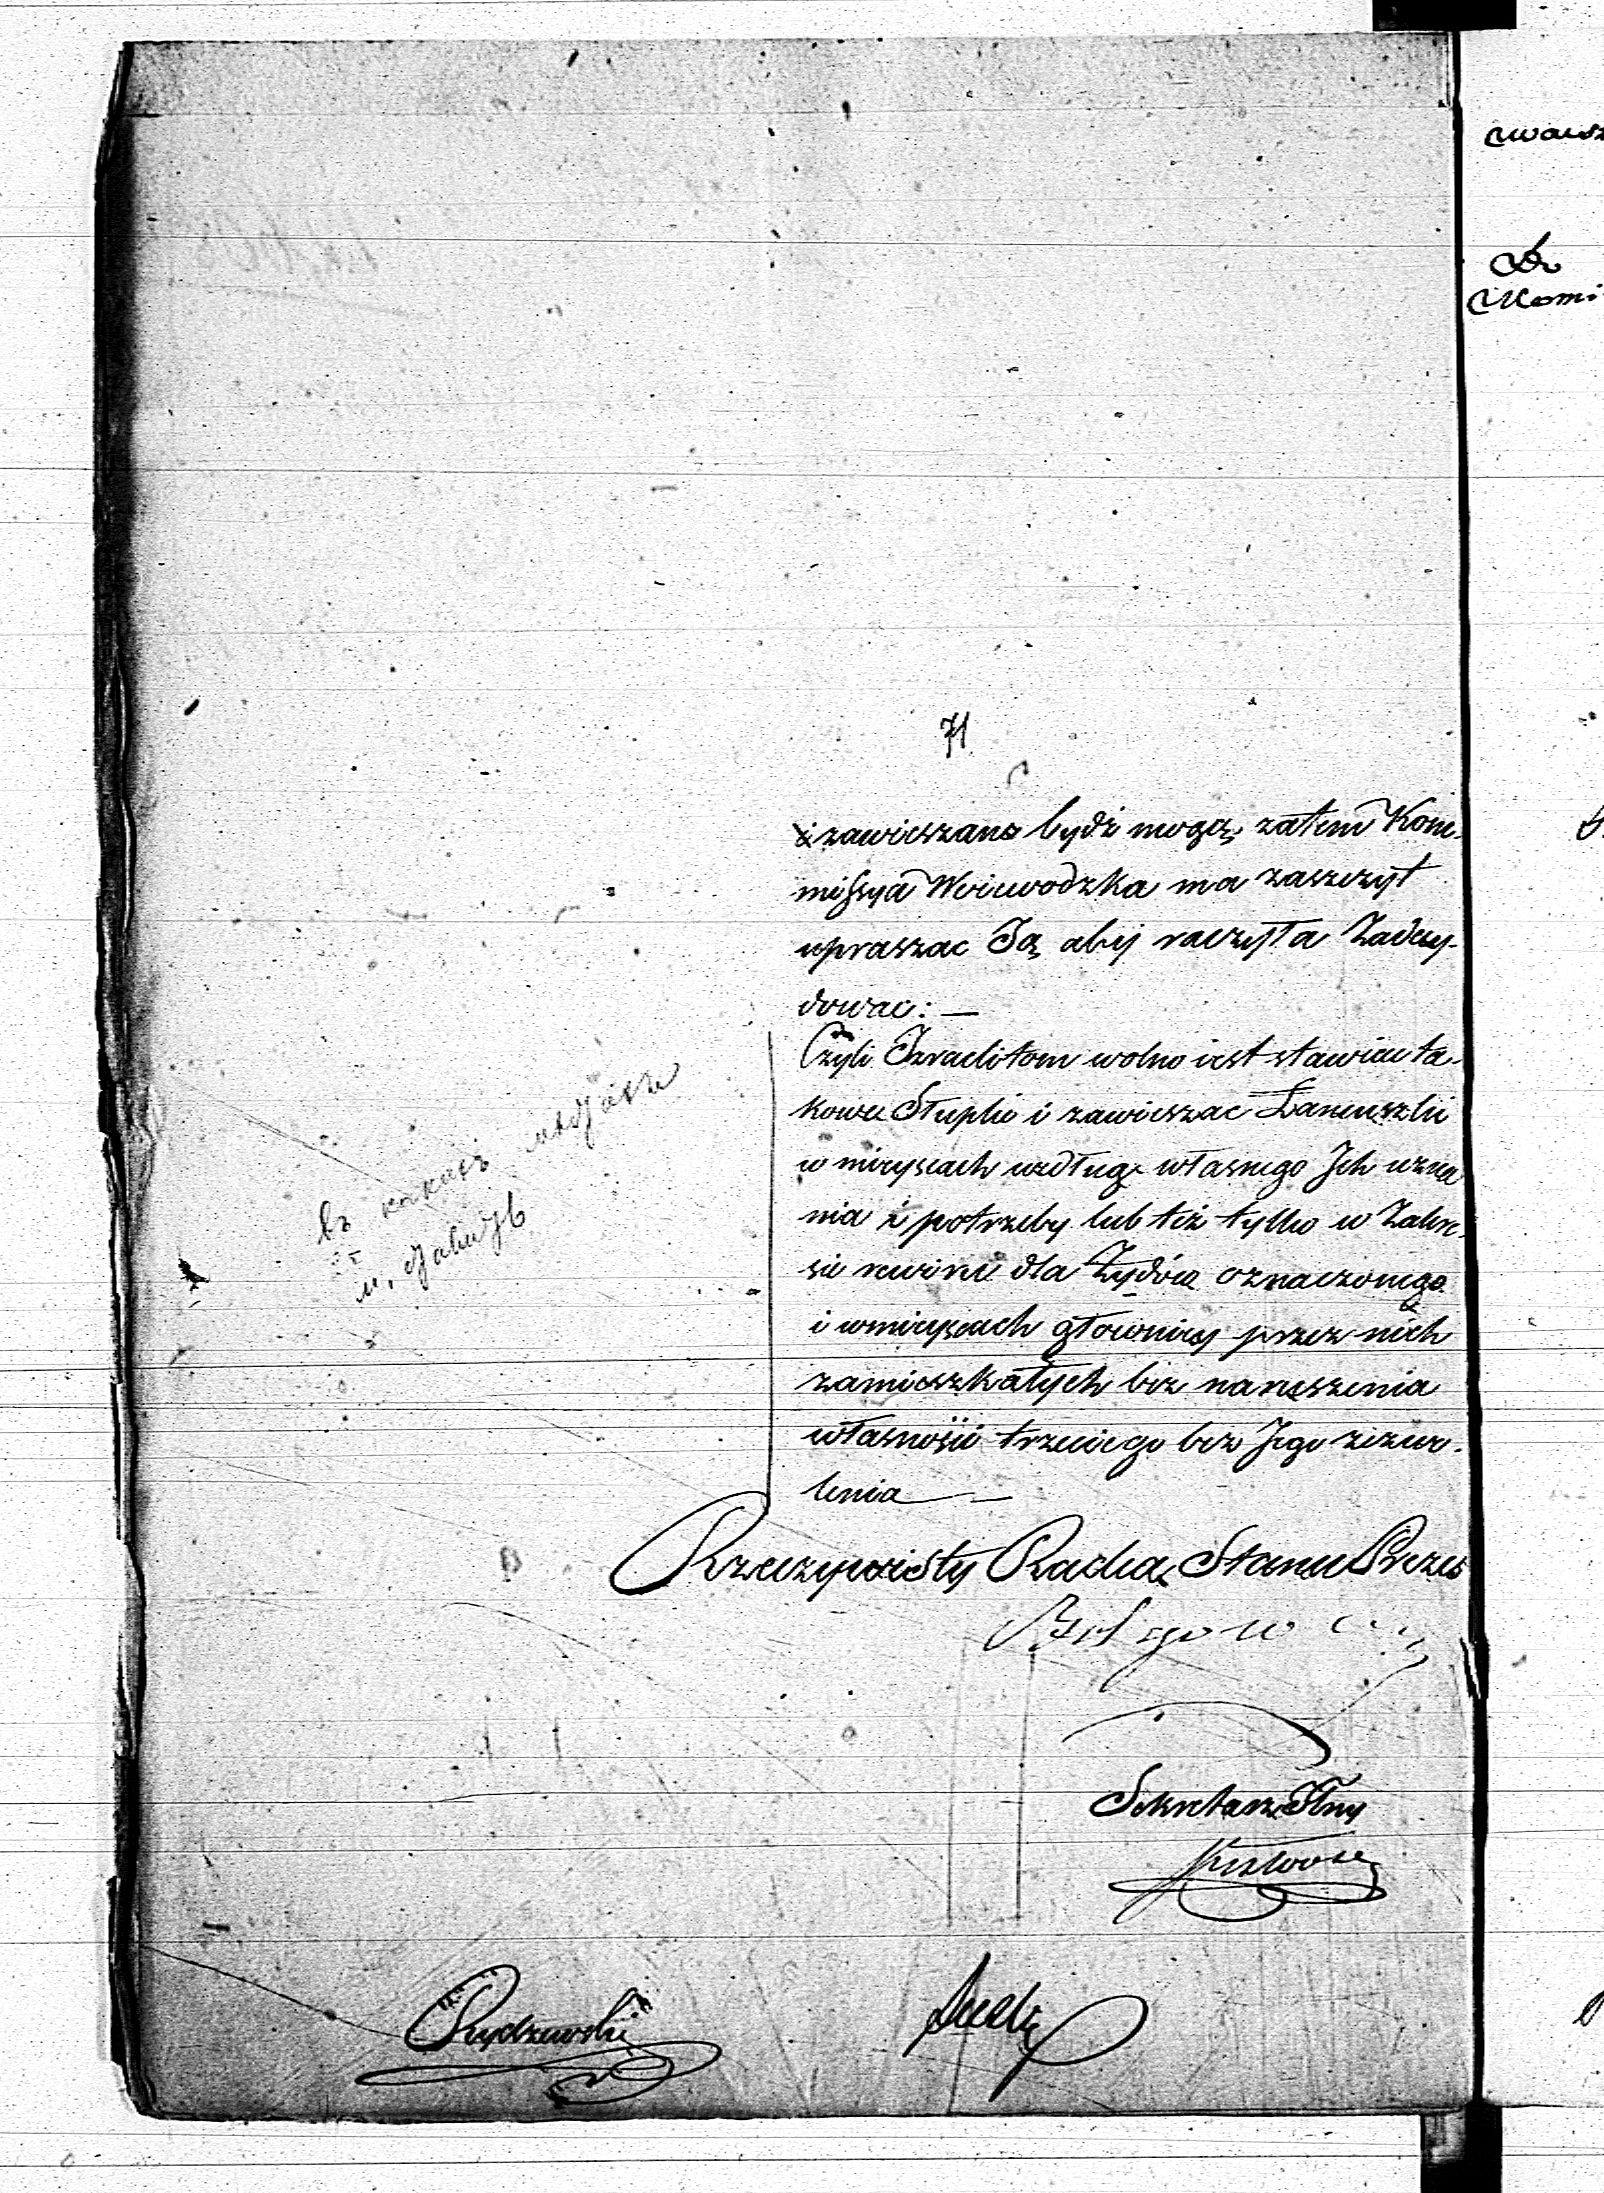 71
i zawieszane bydź mogą, zatem Kom-
missya Woiewodzka ma zaszczyt
upraszac Ią, aby raczyła Zadecy-
dowac: —
Czyli Izraelitom wolno iest stawiac ta-
kowe Słupki i zawieszac Łancuszki
w mieyscach według własnego Ich uzna
nia i potrzeby lub też tylko w Zakre-
sie rewiru dla Żydów oznaczonego
i w mieyscach głowniey przez nich
zamieszkałych bez naruszenia
własności trzeciego bez Jego zezwo-
lenia —
Rzeczywisty Radca Stanu Prezes
Sekretarz Jlny
Rydzewski